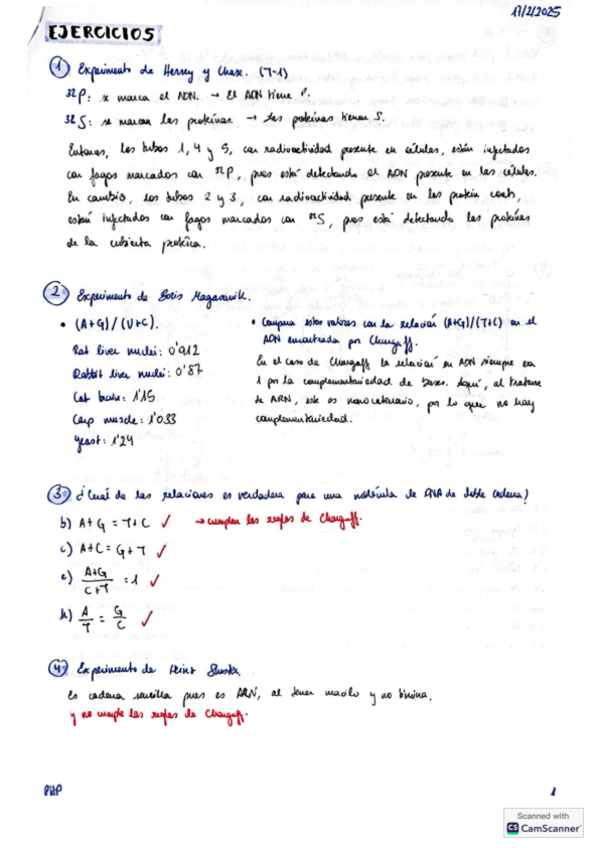 17/2/2025
EJERCICIOS
1) Experimento de Hersey y Chase. (T-1)
32P: se marca el ADN. → El ADN tiene P.
32S: se marcan las proteínas. → Las proteínas tienen S.
Entonces, los tubos 1, 4 y 5, con radioactividad presente en células, están infectados
con fagos marcados con 32P, pues está detectando el ADN presente en las células.
En cambio, los tubos 2 y 3, con radioactividad presente en las protein coats,
están infectados con fagos marcados con 32S, pues está detectando las proteínas
de la cubierta proteica.
2) Experimento de Boris Magasanik.
• (A+G) / (U+C).
Rat liver nuclei: 0'912
Rabbit liver nuclei: 0'87
Cat brain: 1'15
Carp muscle: 1'033
Yeast: 1'24
• Compara estos valores con la relación (A+G)/(T+C) en el
ADN encontrada por Chargaff.
En el caso de Chargaff la relación en ADN siempre era
1 por la complementariedad de bases. Aquí, al tratarse
de ARN, este es monocatenario, por lo que no hay
complementariedad.
3) ¿Cuál de las relaciones es verdadera para una molécula de DNA de doble cadena?
b) A+G = T+C ✓ → cumplen las reglas de Chargaff.
c) A+C = G+T ✓
e) A+G / C+T = 1 ✓
h) A/T = G/C ✓
4) Experimento de Heinz Shuster.
Es cadena sencilla pues es ARN, al tener uracilo y no timina.
y no cumple las reglas de Chargaff.
PHP
1
Scanned with
CS CamScanner